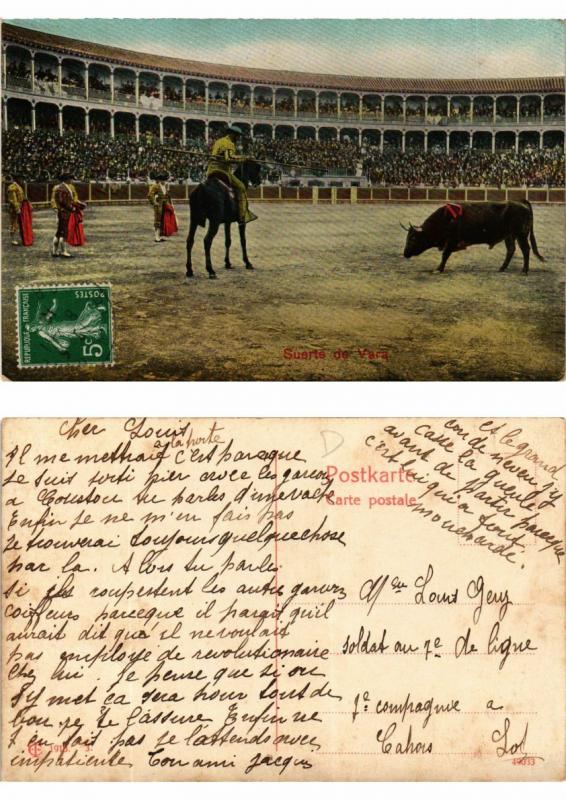 POSTES
RÉPUBLIQUE FRANÇAISE
5c
Suerte de Vara
Cher Louis
a la porte
Il me mettrait c'est parceque
je suis sorti hier avec les garcon
a tu parles d'une vache
Enfin je ne m'en fais pas
je trouverai toujours quelque chose
par la. Alors tu parles
si ils les autres garcons
coiffeurs parceque il parait qu'il
aurait dit que il ne voulait
pas employe de revolutionaire
chez lui. Je pense que si on
s'y met ça sera pour tout de
bon je te l'assure Enfin ne
t'en fait pas je t'attends avec
impatience Ton ami Jacques
et le grand
con de neveu j'y
casse la gueule
avant de partir parceque
c'est lui qui a tout
mouchardé.
Postkarte
Carte postale
D
Mr Louis
soldat au 7e de ligne
7e compagnie a
Cahors Lot
49033